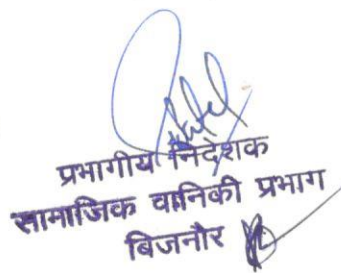 प्रभागीय निदेशक
सामाजिक वानिकी प्रभाग
बिजनौर